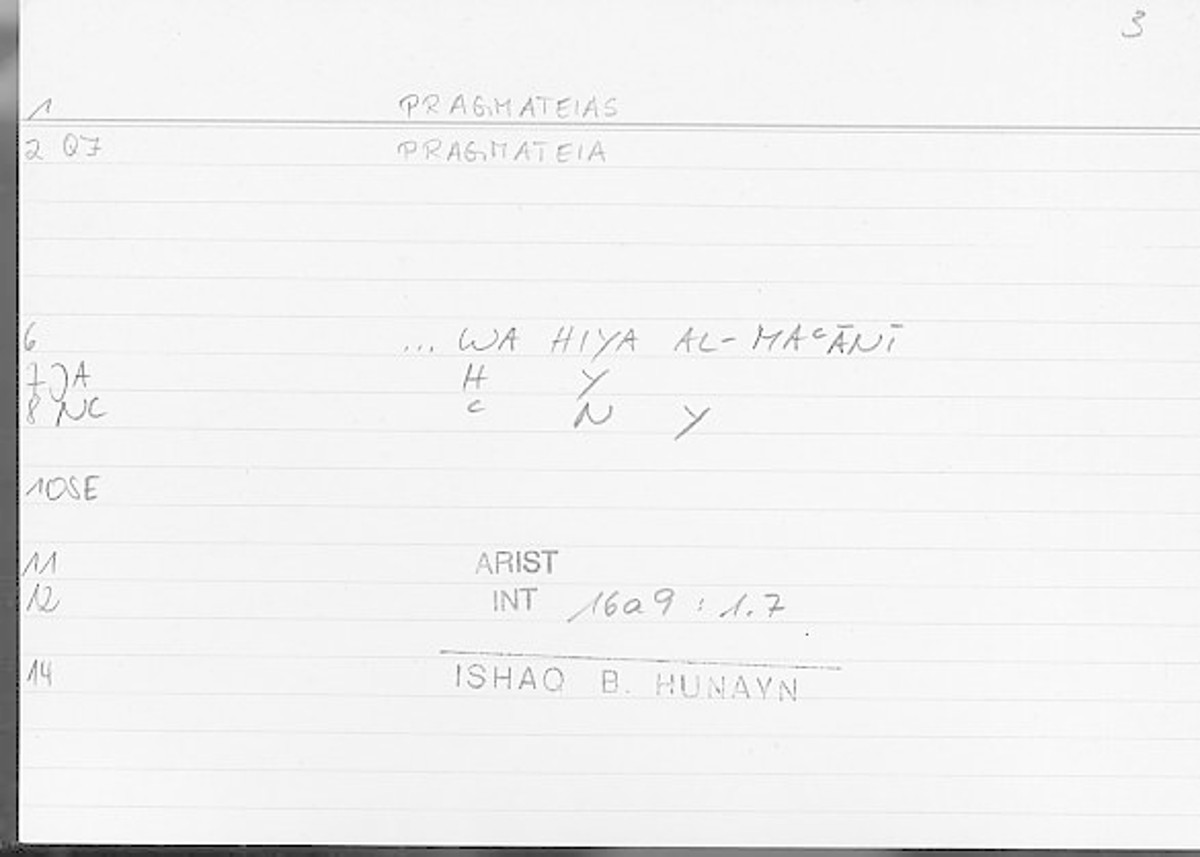 3
1 PRAGMATEIAS
2 Q7 PRAGMATEIA
6 ... WA HIYA AL-MAᶜĀNĪ
7 JA H Y
8 NC ᶜ N Y
10SE
11 ARIST
12 INT 16a9 : 1.7
14 ISHAQ B. HUNAYN